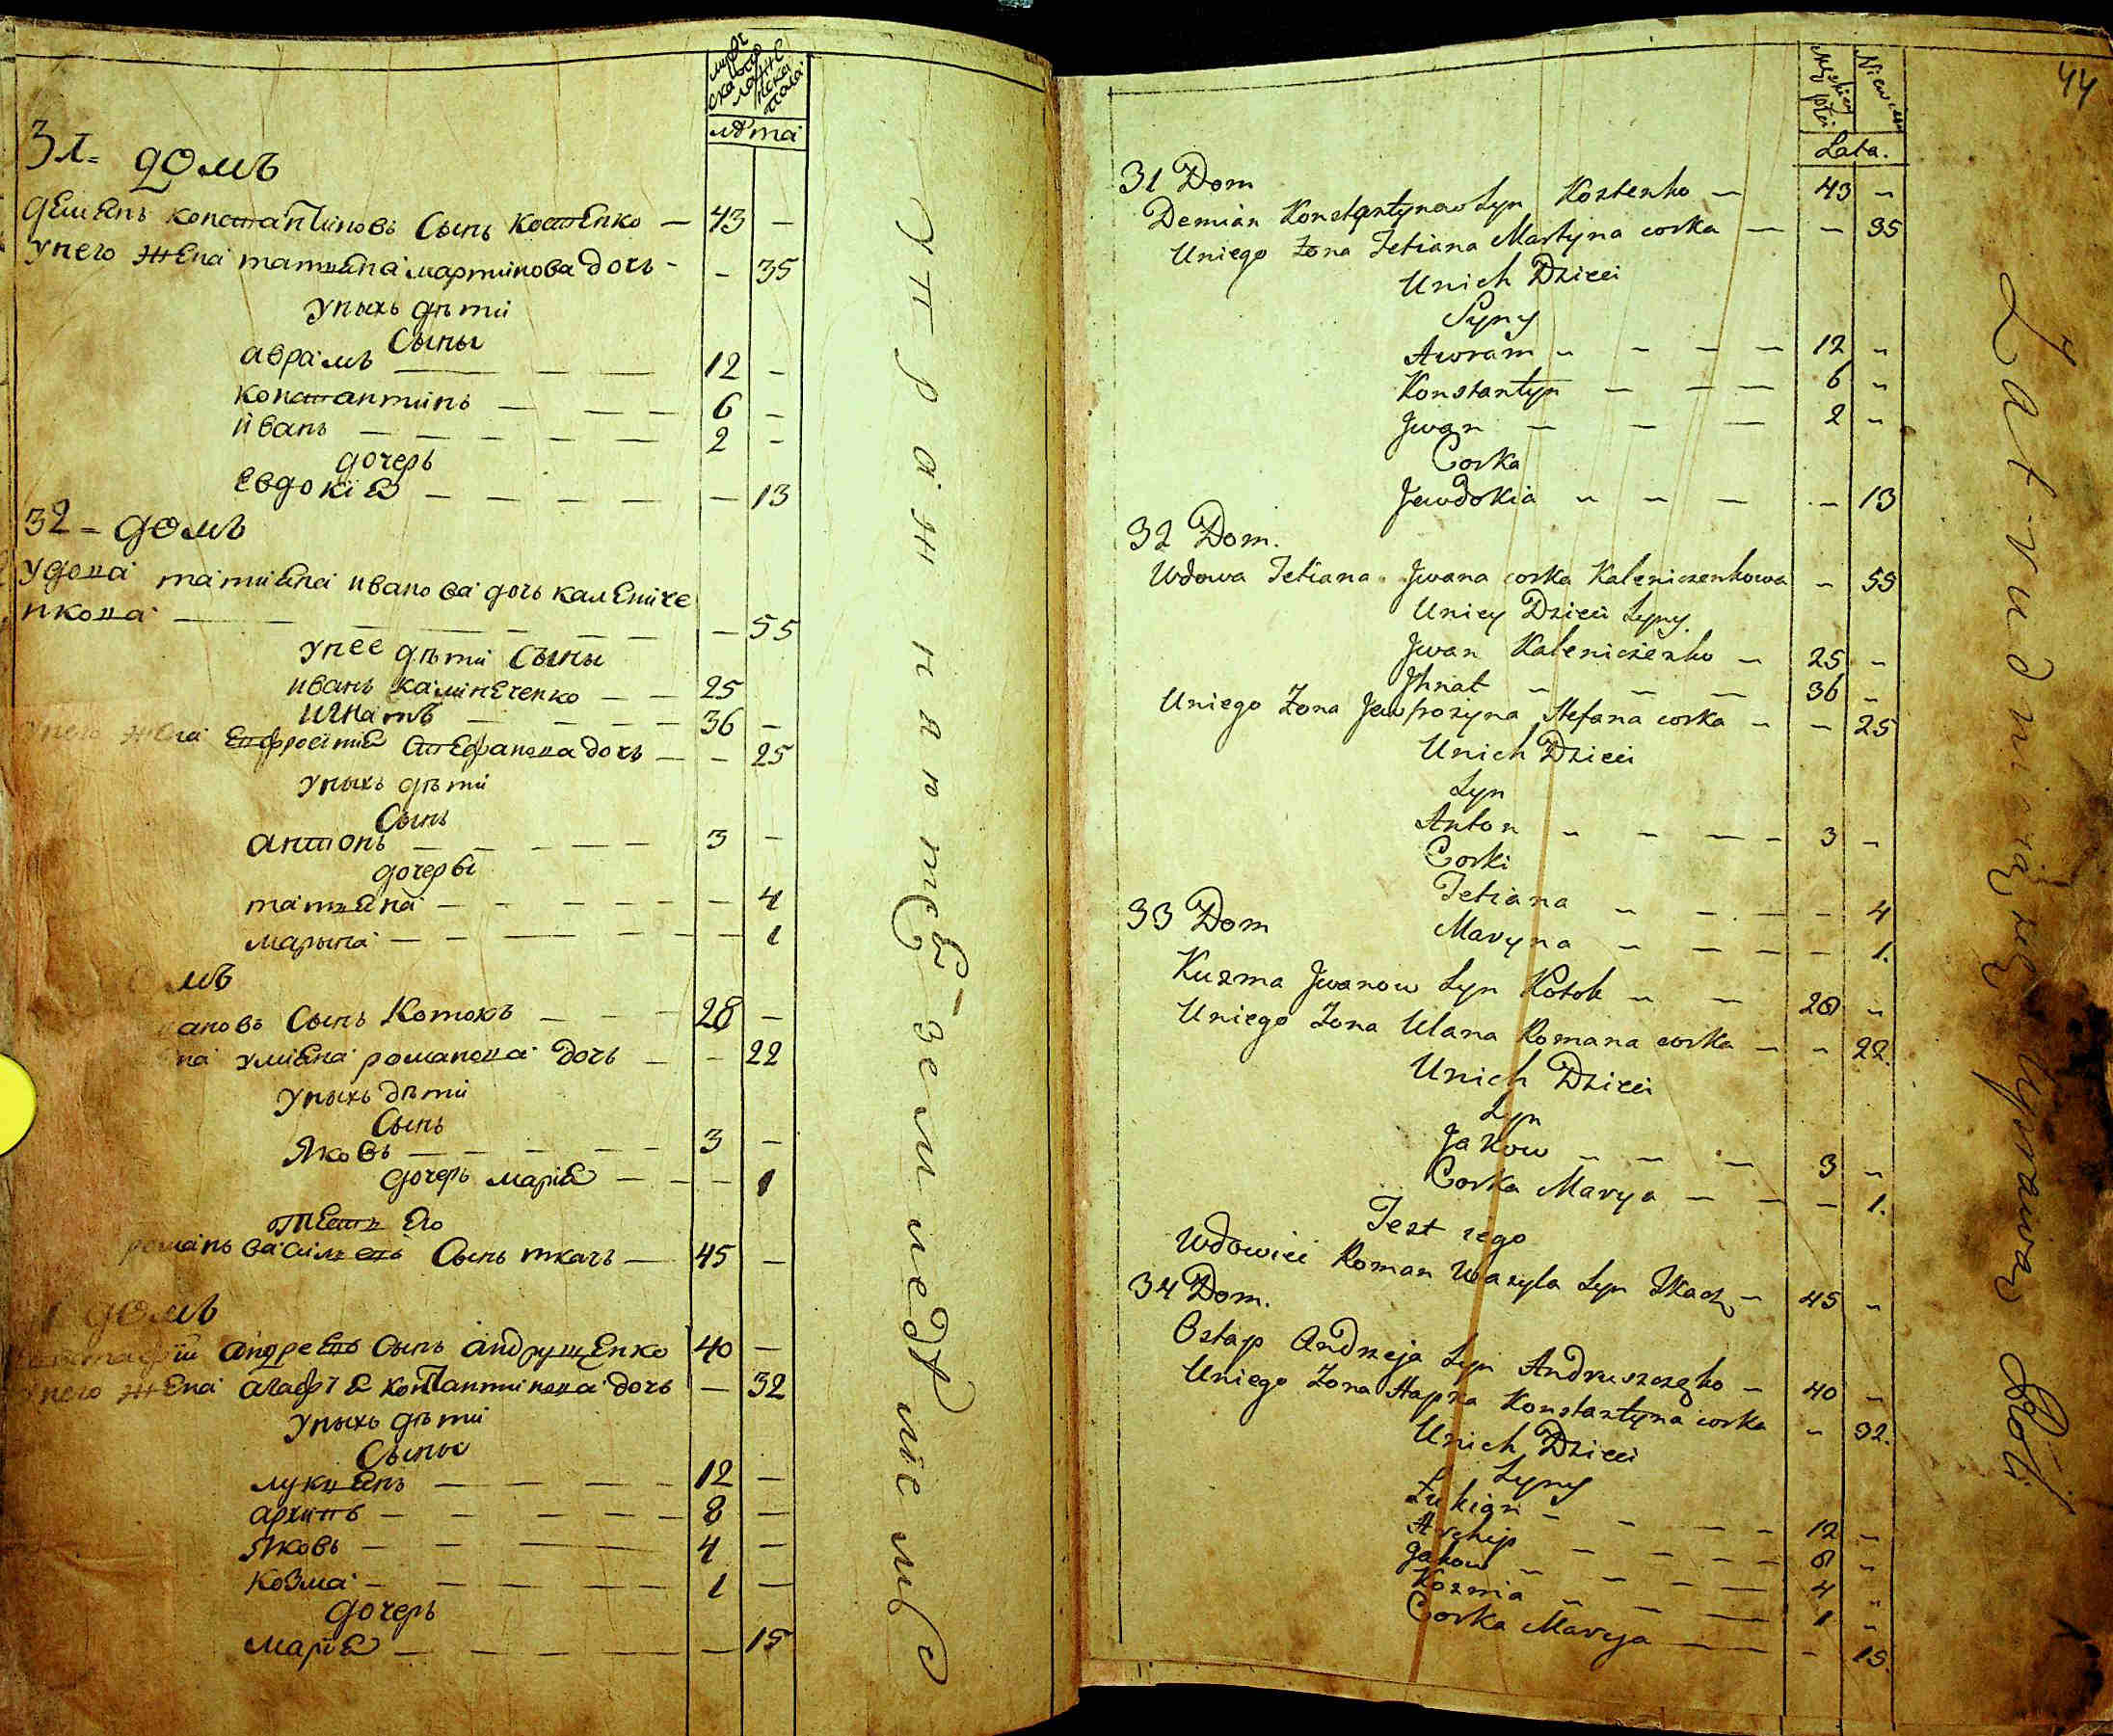 мужеска пола
женска пола
лѣта
31= домъ
демьянъ константиновъ Сынъ костенко — 43 —
унего жена татияна мартинова дочь - - 35
унихъ дѣти
Сыны
аврамъ — — — 12 -
константинъ — — — 6 -
иванъ — — — — — 2 -
дочерь
евдокия — — — — — 13
32 = домъ
удова татияна иванова дочь калениче
нкова — — — — — — — 55
унее дѣти сыны
иванъ калинеченко — — 25
игнатъ — — — — 36 —
унего жена ефросиния стефанова дочь — - 25
унихъ дѣти
Сынъ
антонъ — — — — — 3 —
дочеры
татияна — — — — — — 4
марына — — — — — — — 1
мъ
ановъ Сынъ Котокъ — — — 28 —
на улияна романова дочь — - 22
унихъ дѣти
Сынъ
Яковъ — — — — — 3 —
дочерь мария — — — 1
тесть его
романъ василевъ Сынъ ткачъ — 45 —
домъ
андреевъ Сынъ андрущенко 40 —
унего жена агафия константинова дочь — 32
унихъ дѣти
Сыны
лукиянъ — — — — — 12 —
архипъ — — — — — 8 —
Яковъ — — — — 4 —
козма — — — — — 1 —
дочерь
мария — — — — — — 15
упражнятся земледѣлиемъ
44
Męzkiey płci
Niewies
Lata.
31 Dom
Demian Konstantynow Syn Kostenko — 43 –
Uniego Żona Tetiana Martyna corka — — 35
Unich Dzieci
Syny
Awram – – — — 12 –
Konstantyn — — — 6 –
Jwan — — — 2 –
Corka
Jewdokia – – — – 13
32 Dom.
Wdowa Tetiana Jwana corka Kaleniczenkowa – 55
Uniey Dzieci Syny.
Jwan Kaleniczenko – 25 –
Jhnat – – — 36 –
Uniego Żona Jewfrozyna Stefana corka – – 25
Unich Dzieci
Syn
Anton – – — - 3 –
Corki
Tetiana – – — – 4
Maryna – – — – 1.
33 Dom
Kuzma Jwanow Syn Kotok – — 28 –
Uniego Żona Ulana Romana corka — – 22.
Unich Dzieci
Syn
Jakow – – — 3 –
Corka Marya – — – 1.
Test iego
Wdowiec Roman Wasyla Syn Tkacz – 45 –
34 Dom.
Ostap Andrzeja Syn Andruszczenko – 40 –
Uniego Żona Hapka Konstantyna corka – 32.
Unich Dzieci
Syny
Łukian – – — – 12 –
Archip – – — – 8 –
Jakow – – – — 4 –
Kozma – – — 1 –
Corka Marya — — – 15.
Zatrudniaią się Uprawą Roli